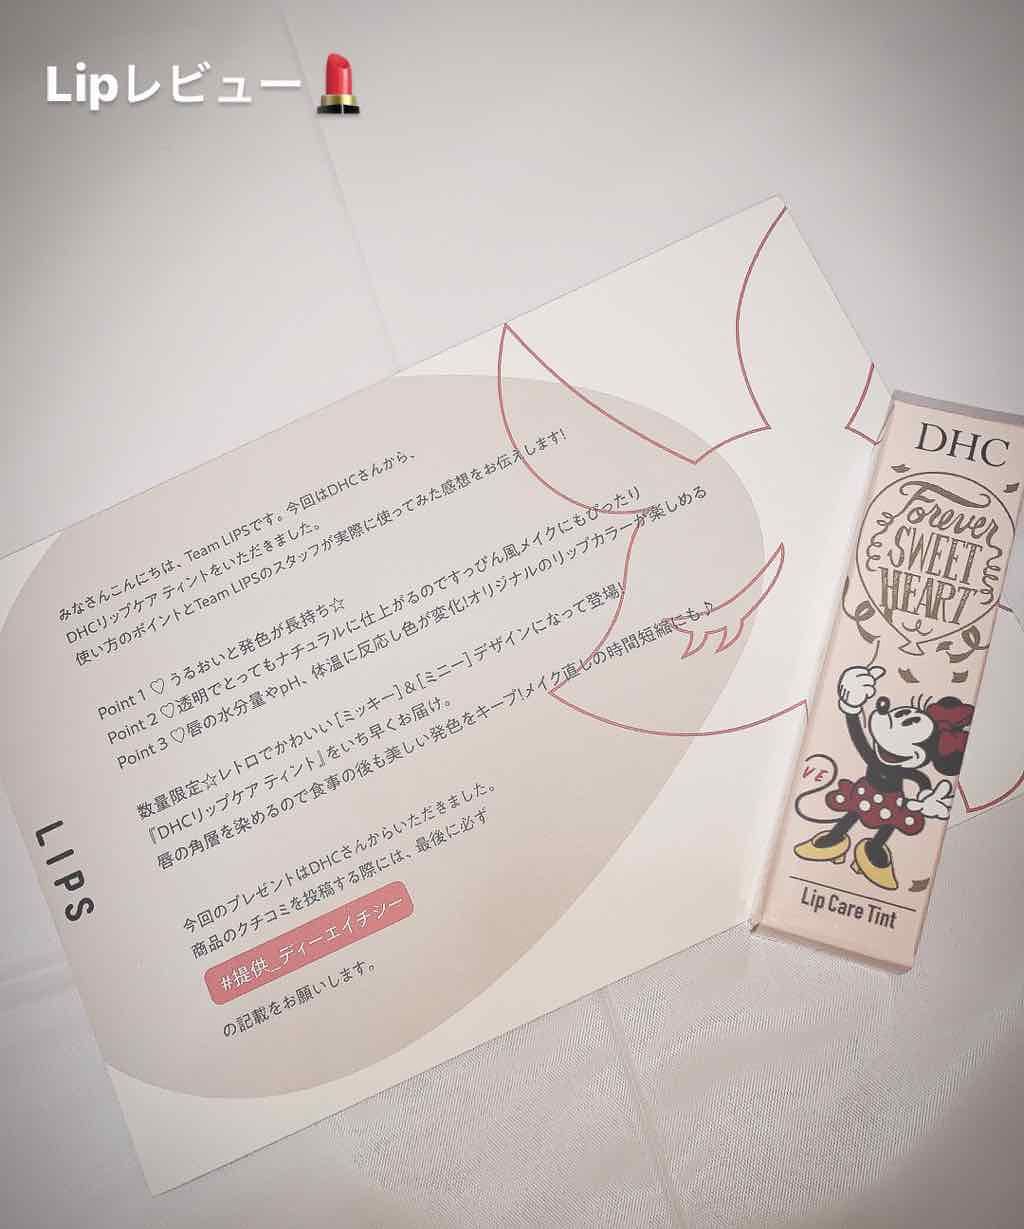 Lipレビュー💄
みなさんこんにちは、Team LIPSです。今回はDHCさんから、
DHCリップケア ティントをいただきました。
使い方のポイントとTeam LIPSのスタッフが実際に使ってみた感想をお伝えします!
Point 1 ♡ うるおいと発色が長持ち☆
Point 2 ♡透明でとってもナチュラルに仕上がるのですっぴん風メイクにもぴったり
Point 3 ♡唇の水分量やpH、体温に反応し色が変化!オリジナルのリップカラーが楽しめる
数量限定☆レトロでかわいい[ミッキー]&[ミニー]デザインになって登場!
『DHCリップケア ティント』をいち早くお届け。
唇の角層を染めるので食事の後も美しい発色をキープ!メイク直しの時間短縮にも♪
今回のプレゼントはDHCさんからいただきました。
商品のクチコミを投稿する際には、最後に必ず
#提供_ディーエイチシー
の記載をお願いします。
LIPS
DHC
Forever
SWEET
HEART
VE
Lip Care Tint